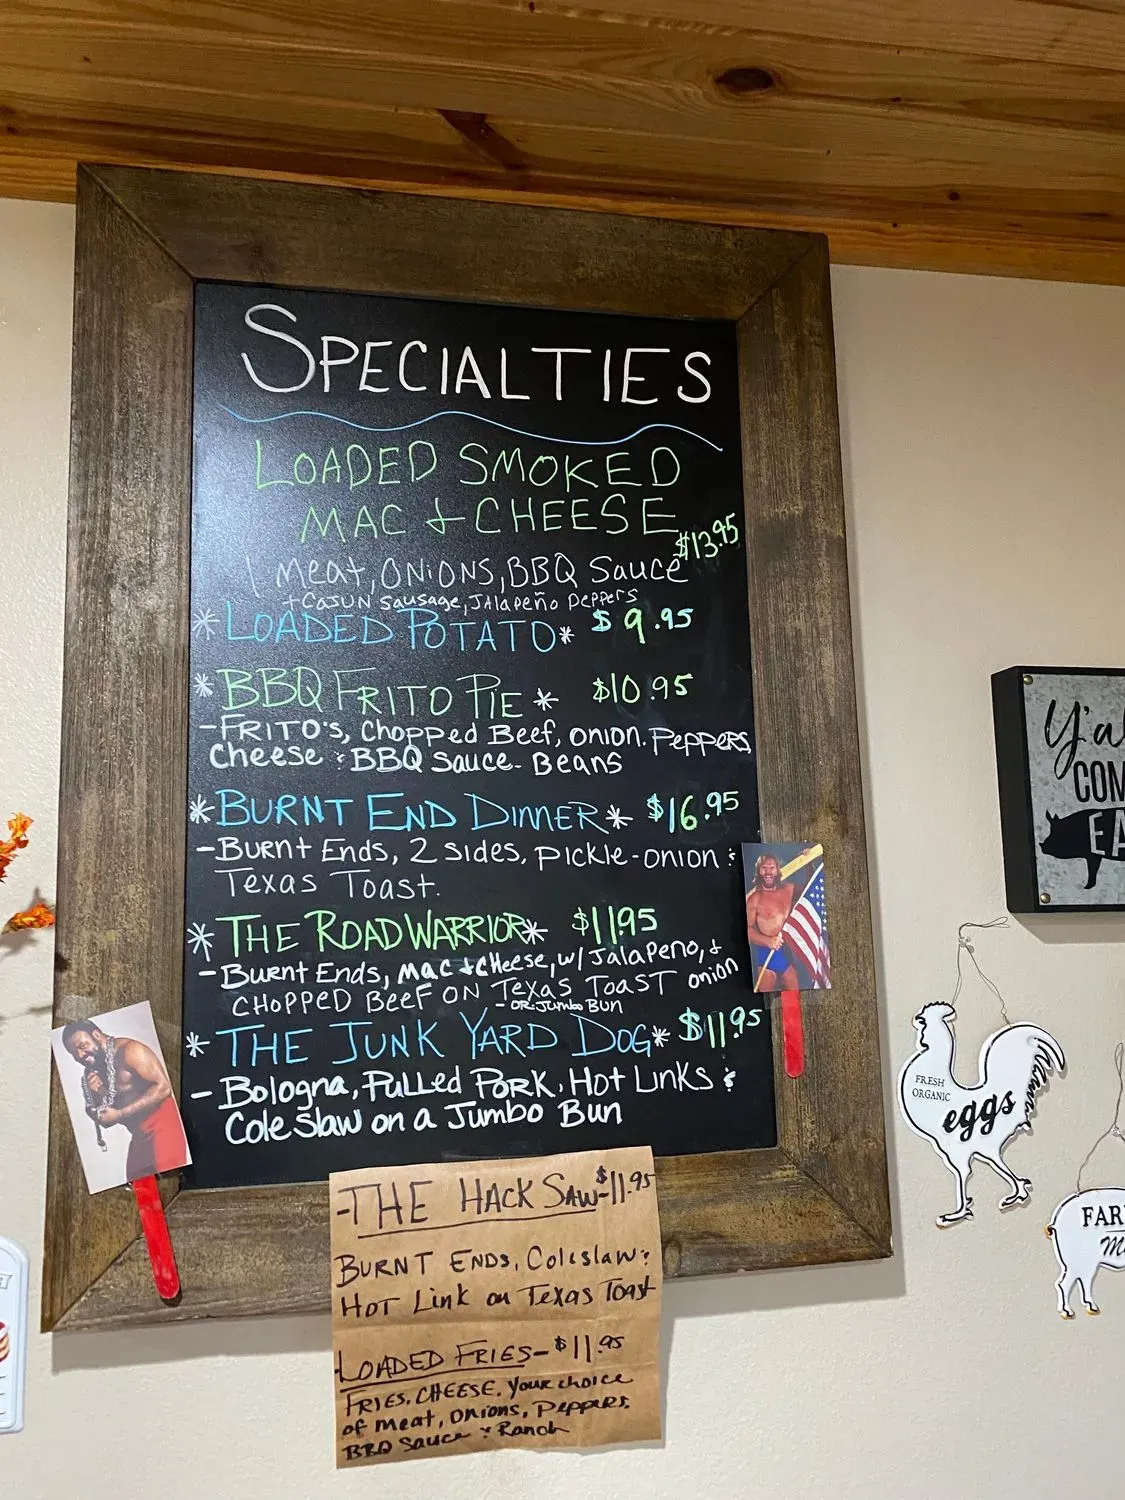 SPECIALTIES
LOADED SMOKED
MAC & CHEESE
$13.95
1 Meat, ONiONS, BBQ Sauce
+ CAJUN Sausage, JALApeño Peppers
*LOADED POTATO* $9.95
*BBQ FRITO PIE* $10.95
-FRITO'S, Chopped Beef, onion. Peppers,
Cheese & BBQ Sauce- Beans
*BURNT END DINNER* $16.95
-Burnt Ends, 2 sides, pickle-onion &
Texas Toast.
*THE ROADWARRIOR* $11.95
-Burnt Ends, Mac & Cheese, w/ Jalapeno, &
CHOPPED BEEF ON Texas TOAST onion
-OR: Jumbo BUN
*THE JUNK YARD DOG* $11.95
-Bologna, Pulled Pork, Hot Links &
Coleslaw on a Jumbo Bun
-THE HACK SAW-$11.95
BURNT ENDS, Coleslaw &
HOT Link on Texas Toast
LOADED FRIES-$11.95
FRIES, CHEESE, Your choice
of meat, onions, Peppers,
BBQ Sauce & Ranch
Y'al
COM
EA
FRESH
ORGANIC
eggs
FAR